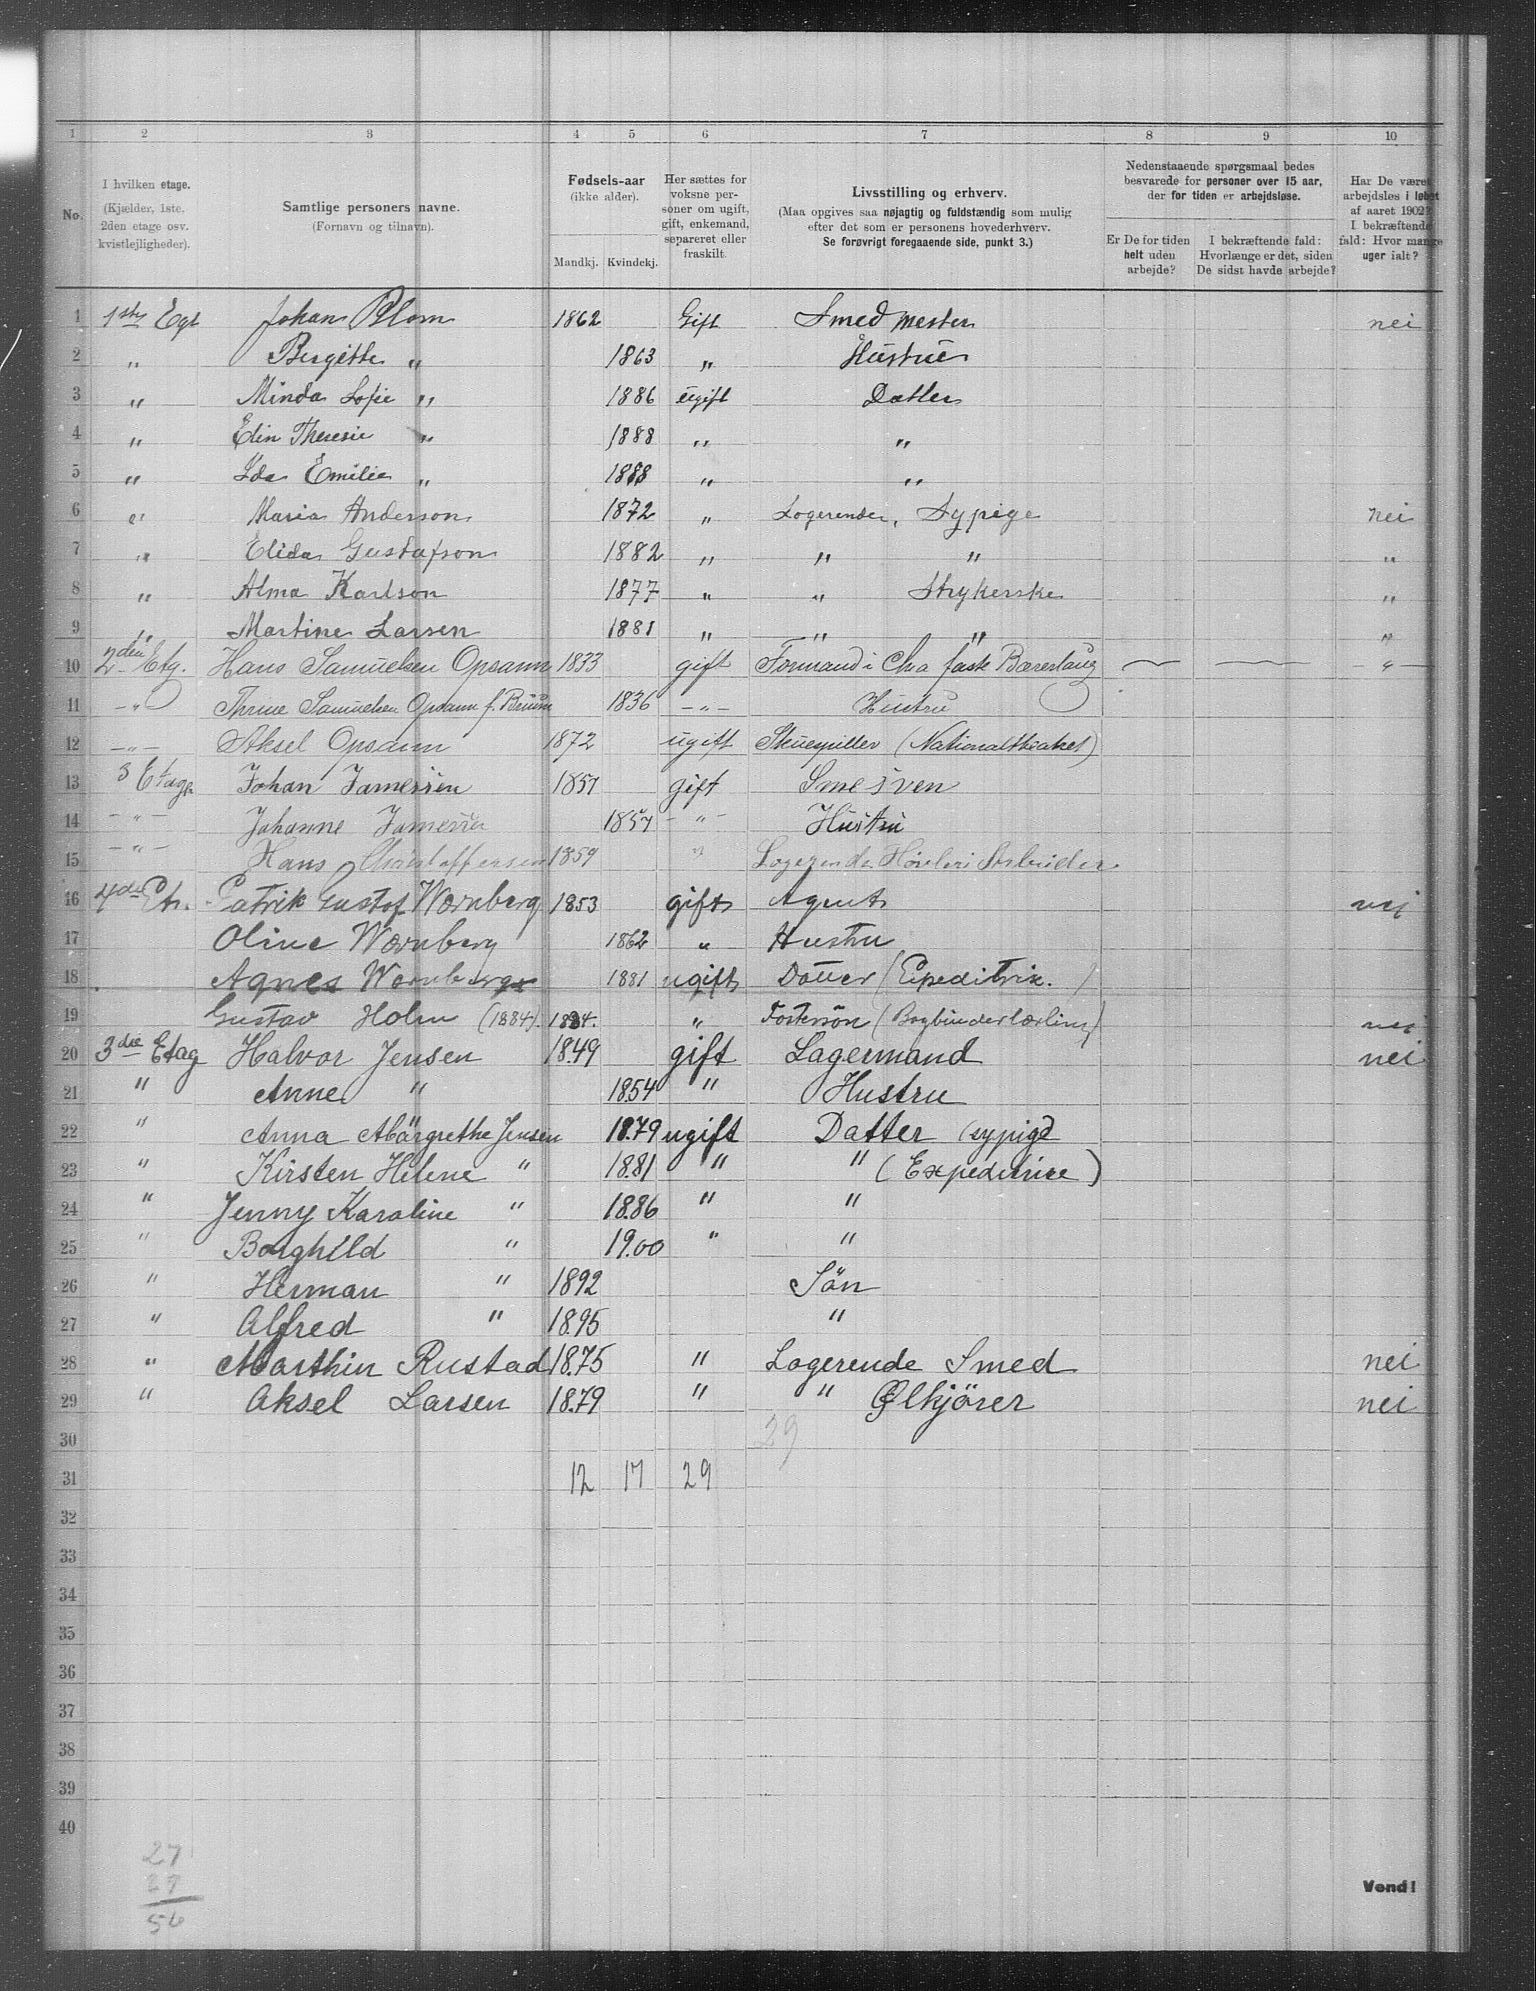 1 2 3 4 5 6 7 8 9 10
No.
I hvilken etage.
(Kjælder, 1ste.
2den etage osv.
kvistlejligheder).
Samtlige personers navne.
(Fornavn og tilnavn).
Fødsels-aar
(ikke alder).
Mandkj. Kvindekj.
Her sættes for
voksne per-
soner om ugift,
gift, enkemand,
separeret eller
fraskilt.
Livsstilling og erhverv.
(Maa opgives saa nøjagtig og fuldstændig som mulig
efter det som er personens hovederhverv.
Se forøvrigt foregaaende side, punkt 3.)
Nedenstaaende spørgsmaal bedes
besvarede for personer over 15 aar,
der for tiden er arbejdsløse.
Er De for tiden
helt uden
arbejde?
I bekræftende fald:
Hvorlænge er det, siden
De sidst havde arbejde?
Har De været
arbejdsløs i løbet
af aaret 1902?
I bekræftende
fald: Hvor mange
uger ialt?
1 1ste Egt Johan Blom 1862 Gift Smed mester nei
2 „ Bergitte „ 1863 „ Hustrue
3 „ Minda Sofie „ 1886 ugift Datter
4 „ Elin Theresie „ 1888 „ „
5 „ Ida Emilie „ 1888 „ „
6 „ Maria Anderson 1872 „ Logerende, Sypige nei
7 „ Elida Gustafson 1882 „ „ „ „
8 „ Alma Karlson 1877 „ „ Strykerske „
9 „ Martine Larsen 1881 „ „ „ „
10 2den Etg. Hans Samuelsen Opsann 1833 gift Formand i Chra faste Bærerlaug — — — „ —
11 — „ — Thrine Samuelsen Opsann f. Bruun 1836 — „ — Hustru
12 — „ — Aksel Opsann 1872 ugift Skuespiller (Nationaltheatret)
13 3 Etage Johan Jamessen 1857 gift Smesven
14 — „ — Johanne Jamessen 1857 — „ — Hustru
15 — „ — Hans Christoffersen 1859 „ Logerende Høvleri Arbeider
16 4de Et. Patrik Gustof Wornberg 1853 gift Agent nej
17 Oline Wornberg 1862 „ Hustru
18 Agnes Wornberg 1881 ugift Datter (Expeditrix.)
19 Gustav Holm (1884). 1884. „ Fostersön (Bogbinderlærling) nej
20 3die Etag Halvor Jensen 1849 gift Lagermand nei
21 " Anne " 1854 " Hustru
22 " Anna Margrethe Jensen 1879 ugift Datter (sypige)
23 " Kirsten Helene " 1881 " " (Expeditrice)
24 " Jenny Karoline " 1886 " "
25 " Borghild " 1900 " "
26 " Herman " 1892 Sön
27 " Alfred " 1895 "
28 " Marthin Rustad 1875 " Logerende Smed nei
29 " Aksel Larsen 1879 " " Ølkjörer nei
30 29
31 12 17 29
32
33
34
35
36
37
38
39
40
27
27
56
Vend!